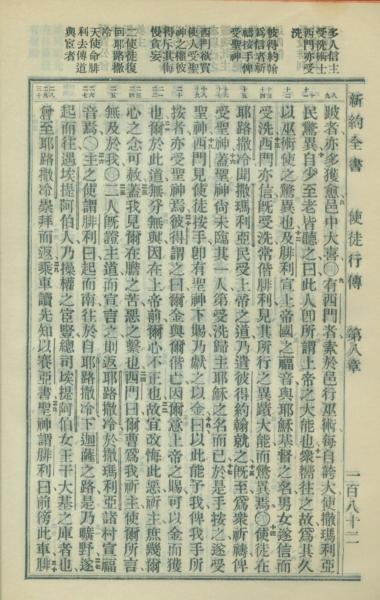 新約全書　使徒行傳　第八章　一百八十二
多人信主
受洗術士
西門亦受
洗
彼得約翰
爲信者祈
禱按手俾
受聖神
西門欲買
使人受聖
神之權彼
得斥其侮
慢貪妄
二使徒復
回耶路撒
冷
天使命腓
利去傳道
與宦者
跛者亦多獲愈邑中大喜〇有西門者素於邑行巫術每自誇大使撒瑪利亞
民驚異自少至老皆聽之曰此人卽所謂上帝之大能也衆嚮往之故爲其久
以巫術使之驚異也及腓利宣上帝國之福音與耶穌基督之名男女遂信而
受洗西門亦信旣受洗常偕腓利見其所行之異蹟大能而驚異焉〇使徒在
耶路撒冷聞撒瑪利亞民受上帝之道乃遣彼得約翰就之旣至爲衆祈禱俾
受聖神蓋聖神尚未臨其一人第受洗歸主耶穌之名而已於是手按之遂受
聖神西門見使徒按手卽有聖神下賜乃獻之以金曰以此能予我俾我手所
按者亦受聖神焉彼得謂之曰爾金與爾偕亡因爾意上帝之賜可以金而獲
也爾於此道無分無與因在上帝前爾心不正也故宜改悔此惡祈主庶幾爾
心之念可赦蓋我見爾在膽之苦惡之繫也西門曰爾曹爲我祈主使爾所言
無及於我〇二人旣證主道而宣言之則返耶路撒冷於撒瑪利亞諸村宣福
音焉〇主之使謂腓利曰起而南往於自耶路撒冷下迦薩之路是乃曠野遂
起而往遇埃提阿伯人乃操權之宦豎總司埃提阿伯女王干大基之庫者也
曾至耶路撒冷崇拜而返乘車讀先知以賽亞書聖神謂腓利曰前傍此車腓